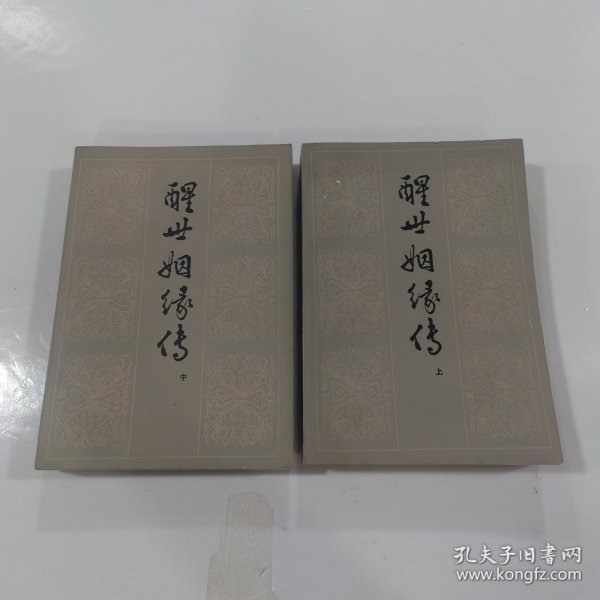 醒世姻缘传
中
醒世姻缘传
上
孔夫子旧書网
www.kongfz.com